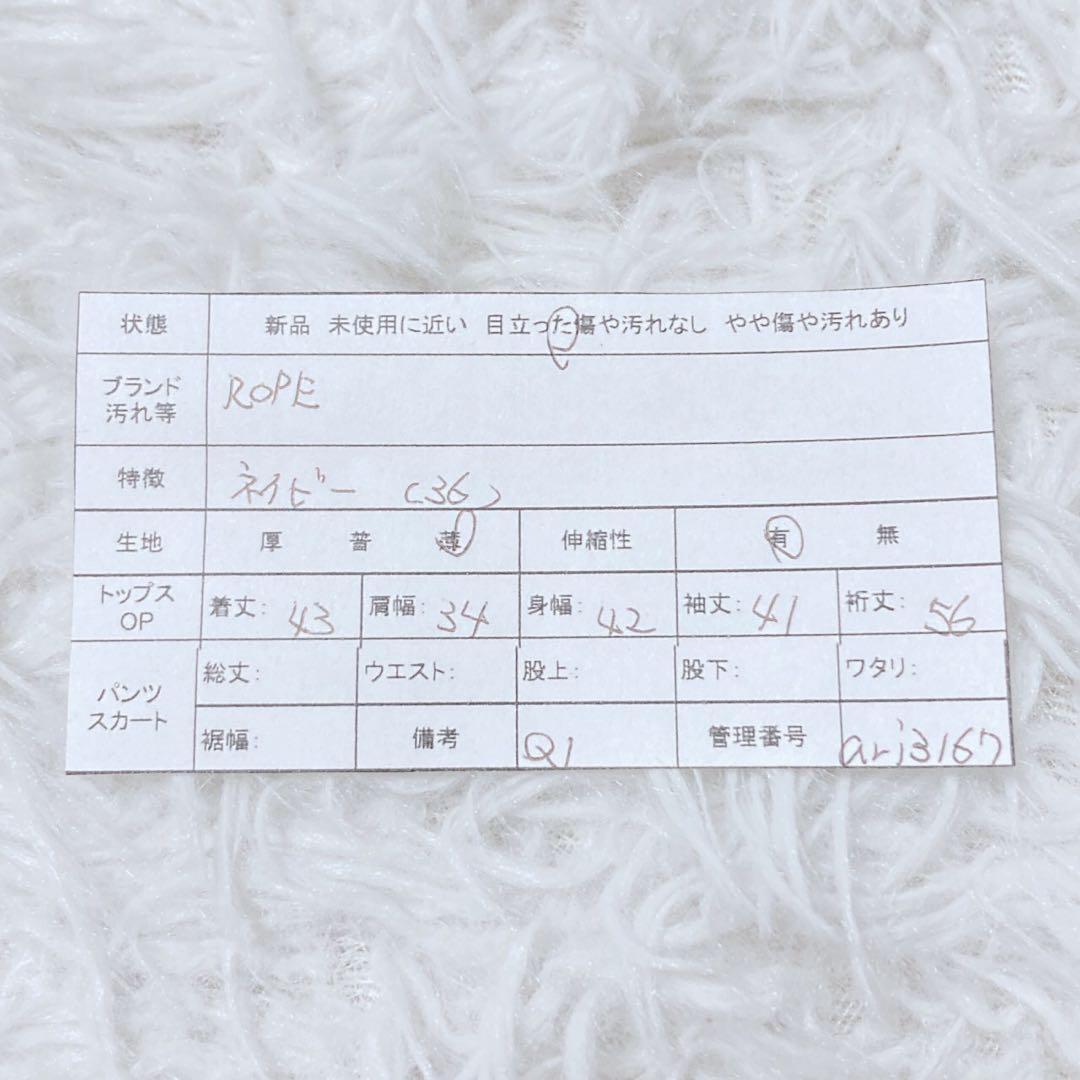 状態 新品 未使用に近い 目立った傷や汚れなし やや傷や汚れあり
ブランド 汚れ等 ROPE
特徴 ネイビー (36)
生地 厚 普 薄 伸縮性 有 無
トップス OP 着丈: 43 肩幅: 34 身幅: 42 袖丈: 41 裄丈: 56
パンツ スカート 総丈: ウエスト: 股上: 股下: ワタリ:
裾幅: 備考 Q1 管理番号 arj3167